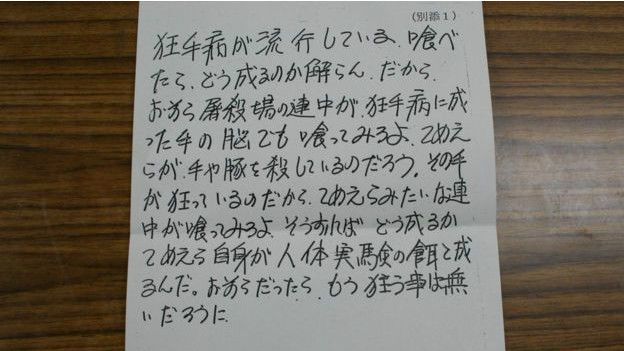 (別添1)
狂手病が流行している、喰べ
たら、どう成るのか解らん、だから、
おめら屠殺場の連中が、狂手病に成
った手の脳でも喰ってみろよ、てめえ
らが、手や豚を殺しているのだろう。その手
が狂っているのだから、てめえらみたいな連
中が喰ってみろよ、そうすれば どう成るか
てめえら自身が人体実験の餌と成
るんだ。おめらだったら、もう狂う事は無
いだろうに